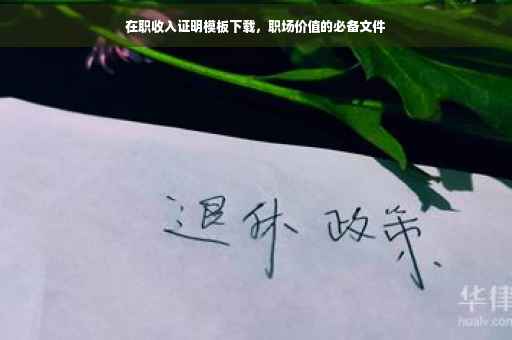 在职收入证明模板下载，职场价值的必备文件
退休 政策
华律
hualv.com